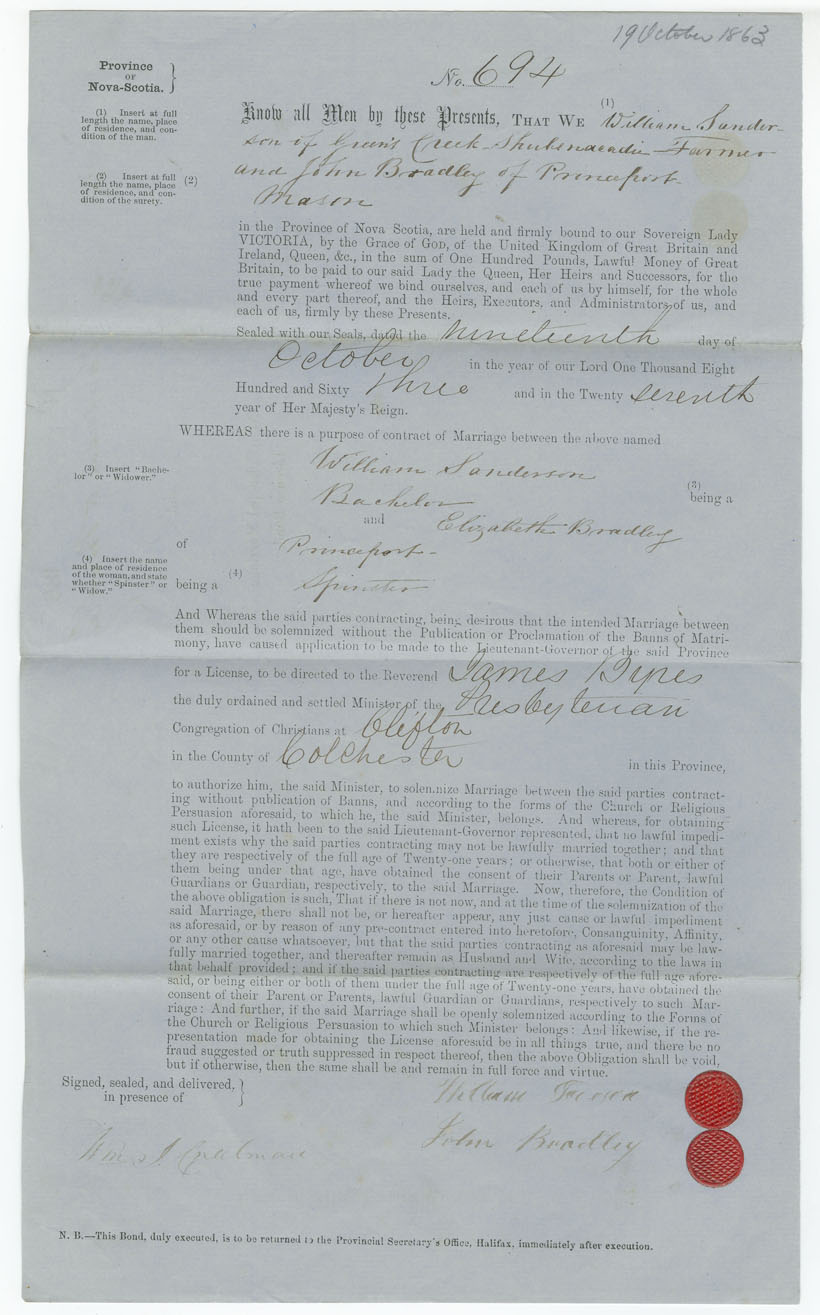 19 October 1863
Province
OF
Nova-Scotia.
No. 694
(1) Insert at full
length the name, place
of residence, and con-
dition of the man.
(1)
Know all Men by these Presents, THAT WE William Sander-
son of Green's Creek - Shubenacadie - Farmer
(2) Insert at full
length the name, place
of residence, and con-
dition of the surety.
(2)
and John Bradley of Princeport -
Mason
in the Province of Nova Scotia, are held and firmly bound to our Sovereign Lady
VICTORIA, by the Grace of GOD, of the United Kingdom of Great Britain and
Ireland, Queen, &c., in the sum of One Hundred Pounds, Lawful Money of Great
Britain, to be paid to our said Lady the Queen, Her Heirs and Successors, for the
true payment whereof we bind ourselves, and each of us by himself, for the whole
and every part thereof, and the Heirs, Executors, and Administrators of us, and
each of us, firmly by these Presents.
Sealed with our Seals, dated the nineteenth day of
October in the year of our Lord One Thousand Eight
Hundred and Sixty three and in the Twenty seventh
year of Her Majesty's Reign.
WHEREAS there is a purpose of contract of Marriage between the above named
William Sanderson
(3) Insert "Bache-
lor" or "Widower."
(3)
Bachelor being a
and Elizabeth Bradley
of Princeport -
(4) Insert the name
and place of residence
of the woman, and state
whether "Spinster" or
"Widow."
(4)
being a Spinster
And Whereas the said parties contracting, being desirous that the intended Marriage between
them should be solemnized without the Publication or Proclamation of the Banns of Matri-
mony, have caused application to be made to the Lieutenant-Governor of the said Province
for a License, to be directed to the Reverend James Byres
the duly ordained and settled Minister of the Presbyterian
Congregation of Christians at Clifton
in the County of Colchester in this Province,
to authorize him, the said Minister, to solemnize Marriage between the said parties contract-
ing without publication of Banns, and according to the forms of the Church or Religious
Persuasion aforesaid, to which he, the said Minister, belongs. And whereas, for obtaining
such License, it hath been to the said Lieutenant-Governor represented, that no lawful impedi-
ment exists why the said parties contracting may not be lawfully married together; and that
they are respectively of the full age of Twenty-one years; or otherwise, that both or either of
them being under that age, have obtained the consent of their Parents or Parent, lawful
Guardians or Guardian, respectively, to the said Marriage. Now, therefore, the Condition of
the above obligation is such, That if there is not now, and at the time of the solemnization of the
said Marriage, there shall not be, or hereafter appear, any just cause or lawful impediment
as aforesaid, or by reason of any pre-contract entered into heretofore, Consanguinity, Affinity,
or any other cause whatsoever, but that the said parties contracting as aforesaid may be law-
fully married together, and thereafter remain as Husband and Wife, according to the laws in
that behalf provided; and if the said parties contracting are respectively of the full age afore-
said, or being either or both of them under the full age of Twenty-one years, have obtained the
consent of their Parent or Parents, lawful Guardian or Guardians, respectively to such Mar-
riage: And further, if the said Marriage shall be openly solemnized according to the Forms of
the Church or Religious Persuasion to which such Minister belongs: And likewise, if the re-
presentation made for obtaining the License aforesaid be in all things true, and there be no
fraud suggested or truth suppressed in respect thereof, then the above Obligation shall be void,
but if otherwise, then the same shall be and remain in full force and virtue.
Signed, sealed, and delivered,
in presence of
William
John Bradley
Wm
N. B.—This Bond, duly executed, is to be returned to the Provincial Secretary's Office, Halifax, immediately after execution.